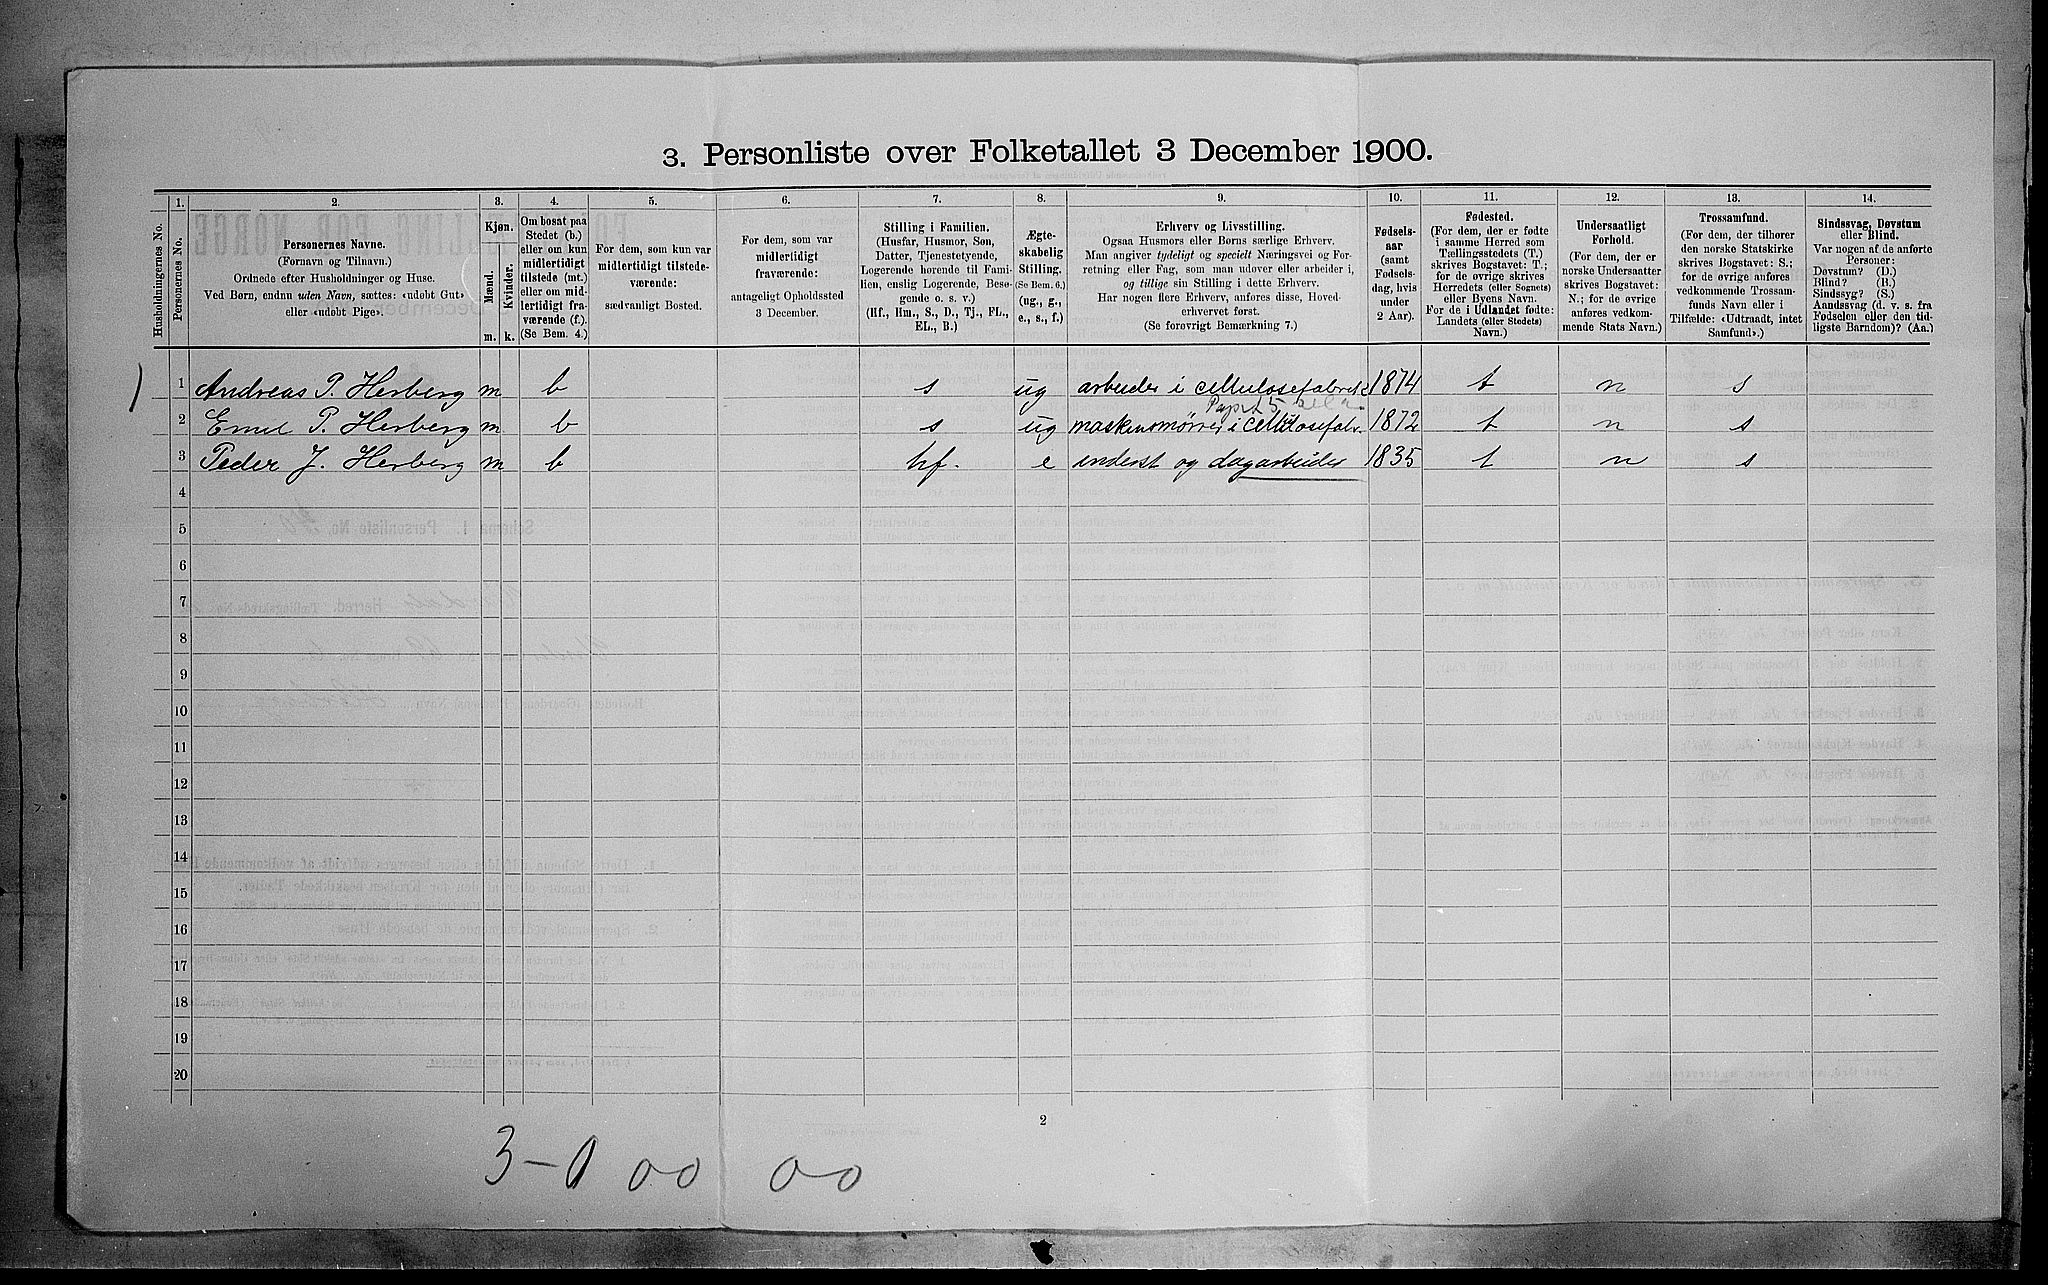 3. Personliste over Folketallet 3 December 1900.
1. 2. 3. 4. 5. 6. 7. 8. 9. 10. 11. 12. 13. 14.
Husholdningernes No.
Personernes No.
Personernes Navne.
(Fornavn og Tilnavn.)
Ordnede efter Husholdninger og Huse.
Ved Børn, endnu uden Navn, sættes: «udøbt Gut»
eller «udøbt Pige».
Kjøn.
Mænd.
Kvinder.
m. k.
Om bosat paa
Stedet (b.)
eller om kun
midlertidigt
tilstede (mt.)
eller om mid-
lertidigt fra-
værende (f.).
(Se Bem. 4.)
For dem, som kun var
midlertidigt tilstede-
værende:
sædvanligt Bosted.
For dem, som var
midlertidigt
fraværende:
antageligt Opholdssted
3 December.
Stilling i Familien.
(Husfar, Husmor, Søn,
Datter, Tjenestetyende,
Logerende hørende til Fami-
lien, enslig Logerende, Besø-
gende o. s. v.)
(Hf., Hm., S., D., Tj., FL.,
EL., B.)
Ægte-
skabelig
Stilling.
(Se Bem. 6.)
(ug., g.,
e., s., f.)
Erhverv og Livsstilling.
Ogsaa Husmors eller Børns særlige Erhverv.
Man angiver tydeligt og specielt Næringsvei og For-
retning eller Fag, som man udøver eller arbeider i,
og tillige sin Stilling i dette Erhverv.
Har nogen flere Erhverv, anføres disse, Hoved-
erhvervet først.
(Se forøvrigt Bemærkning 7.)
Fødsels-
aar
(samt
Fødsels-
dag, hvis
under
2 Aar).
Fødested.
(For dem, der er fødte
i samme Herred som
Tællingsstedets (T.)
skrives Bogstavet: T.;
for de øvrige skrives
Herredets (eller Sognets)
eller Byens Navn.
For de i Udlandet fødte:
Landets (eller Stedets)
Navn.)
Undersaatligt
Forhold.
(For dem, der er
norske Undersaatter
skrives Bogstavet:
N.; for de øvrige
anføres vedkom-
mende Stats Navn.)
Trossamfund.
(For dem, der tilhører
den norske Statskirke
skrives Bogstavet: S.;
for de øvrige anføres
vedkommende Trossam-
funds Navn eller i
Tilfælde: «Udtraadt, intet
Samfund».)
Sindssvag, Døvstum
eller Blind.
Var nogen af de anførte
Personer:
Døvstum? (D.)
Blind? (B.)
Sindssyg? (S.)
Aandssvag (d. v. s. fra
Fødselen eller den tid-
ligste Barndom)? (Aa.)
1 Andreas P. Herberg m b s ug arbeider i cellulosefabrik 1874 t n s
2 Emil P. Herberg m b s ug maskinsmører i cellulosefab. 1872 t n s
3 Peder J. Herberg m b hf. e inderst og dagarbeider 1835 t n s
4
5
6
7
8
9
10
11
12
13
14
15
16
17
18
19
20
2
3-0 00 00